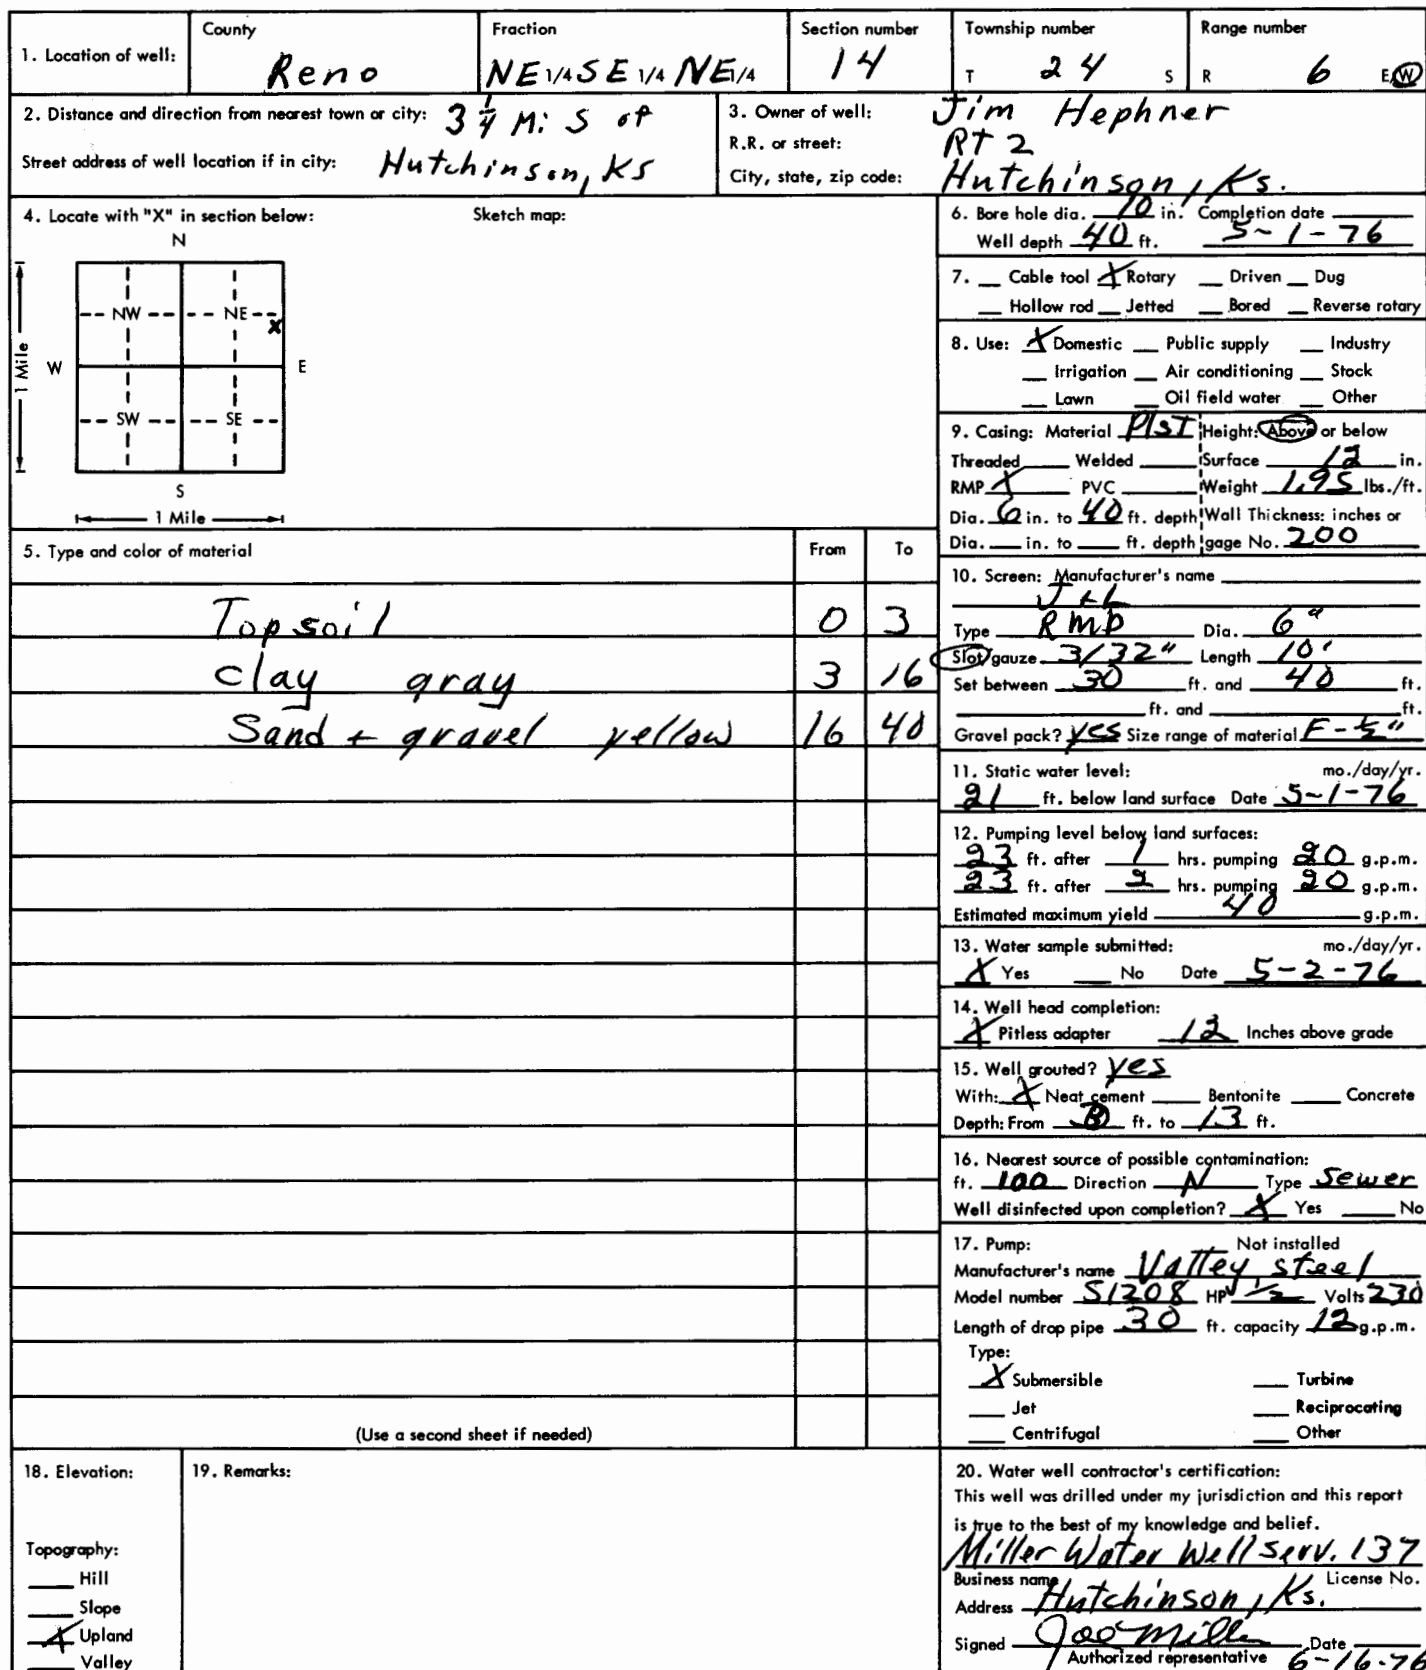 1. Location of well: County Reno Fraction NE 1/4 SE 1/4 NE 1/4 Section number 14 Township number T 24 S Range number R 6 E/W
2. Distance and direction from nearest town or city: 3 1/4 Mi S of
Street address of well location if in city: Hutchinson, KS
3. Owner of well: Jim Hephner
R.R. or street: RT 2
City, state, zip code: Hutchinson, Ks.
4. Locate with "X" in section below: Sketch map:
N
NW NE
X
W E
1 Mile
SW SE
S
1 Mile
5. Type and color of material From To
Topsoil 0 3
clay gray 3 16
Sand + gravel yellow 16 40
(Use a second sheet if needed)
6. Bore hole dia. 10 in. Completion date
Well depth 40 ft. 5-1-76
7. Cable tool X Rotary Driven Dug
Hollow rod Jetted Bored Reverse rotary
8. Use: X Domestic Public supply Industry
Irrigation Air conditioning Stock
Lawn Oil field water Other
9. Casing: Material Plst Height: Above or below
Threaded Welded Surface 12 in.
RMP X PVC Weight 1.95 lbs./ft.
Dia. 6 in. to 40 ft. depth Wall Thickness: inches or
Dia. in. to ft. depth gage No. 200
10. Screen: Manufacturer's name
J + L
Type RMP Dia. 6"
Slot/gauze 3/32" Length 10'
Set between 30 ft. and 40 ft.
ft. and ft.
Gravel pack? yes Size range of material F - 1/2"
11. Static water level: mo./day/yr.
21 ft. below land surface Date 5-1-76
12. Pumping level below land surfaces:
23 ft. after 1 hrs. pumping 20 g.p.m.
23 ft. after 2 hrs. pumping 20 g.p.m.
Estimated maximum yield 40 g.p.m.
13. Water sample submitted: mo./day/yr.
X Yes No Date 5-2-76
14. Well head completion:
X Pitless adapter 12 Inches above grade
15. Well grouted? yes
With: X Neat cement Bentonite Concrete
Depth: From ft. to 13 ft.
16. Nearest source of possible contamination:
ft. 100 Direction N Type Sewer
Well disinfected upon completion? X Yes No
17. Pump: Not installed
Manufacturer's name Valley steel
Model number S1208 HP 1/2 Volts 230
Length of drop pipe 30 ft. capacity 12 g.p.m.
Type:
X Submersible Turbine
Jet Reciprocating
Centrifugal Other
18. Elevation:
Topography:
Hill
Slope
X Upland
Valley
19. Remarks:
20. Water well contractor's certification:
This well was drilled under my jurisdiction and this report
is true to the best of my knowledge and belief.
Miller Water Well Serv. 137
Business name License No.
Address Hutchinson, Ks.
Signed Joe Miller Date
Authorized representative 6-16-76